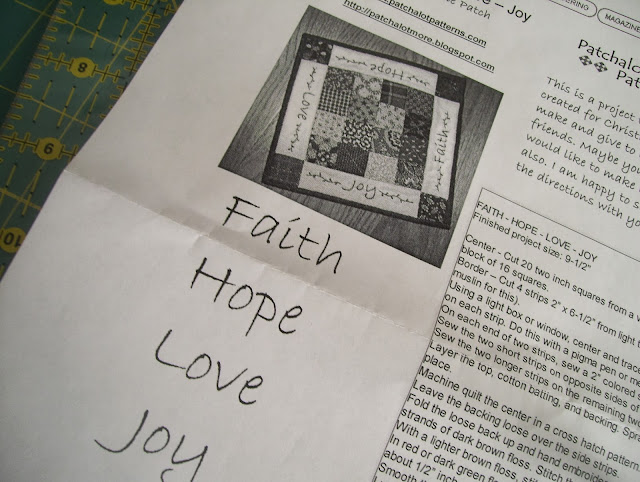 – Joy
Patch
patchalotpatterns.com
http://patchalotmore.blogspot.com
MAGAZINE
Patchalo
Pat
This is a project
created for Christ
make and give to
friends. Maybe you
would like to make
also. I am happy to s
the directions with yo
Hope
Love
Faith
Joy
Faith
Hope
Love
Joy
FAITH - HOPE - LOVE - JOY
Finished project size: 9-1/2"
Center - Cut 20 two inch squares from a v
block of 16 squares.
Border – Cut 4 strips 2" x 6-1/2" from light
muslin for this).
Using a light box or window, center and trace
on each strip. Do this with a pigma pen or
On each end of two strips, sew a 2" colored s
Sew the two short strips on opposite sides of
Sew the two longer strips on the remaining two
Layer the top, cotton batting, and backing.
place.
Machine quilt the center in a cross hatch pattern
Leave the backing loose over the side strips.
Fold the loose back up and hand embroider
strands of dark brown floss. Stitch the
With a lighter brown floss, stitch
In red or dark green floss, sti
about 1/2" inch
Smooth
8
9
10